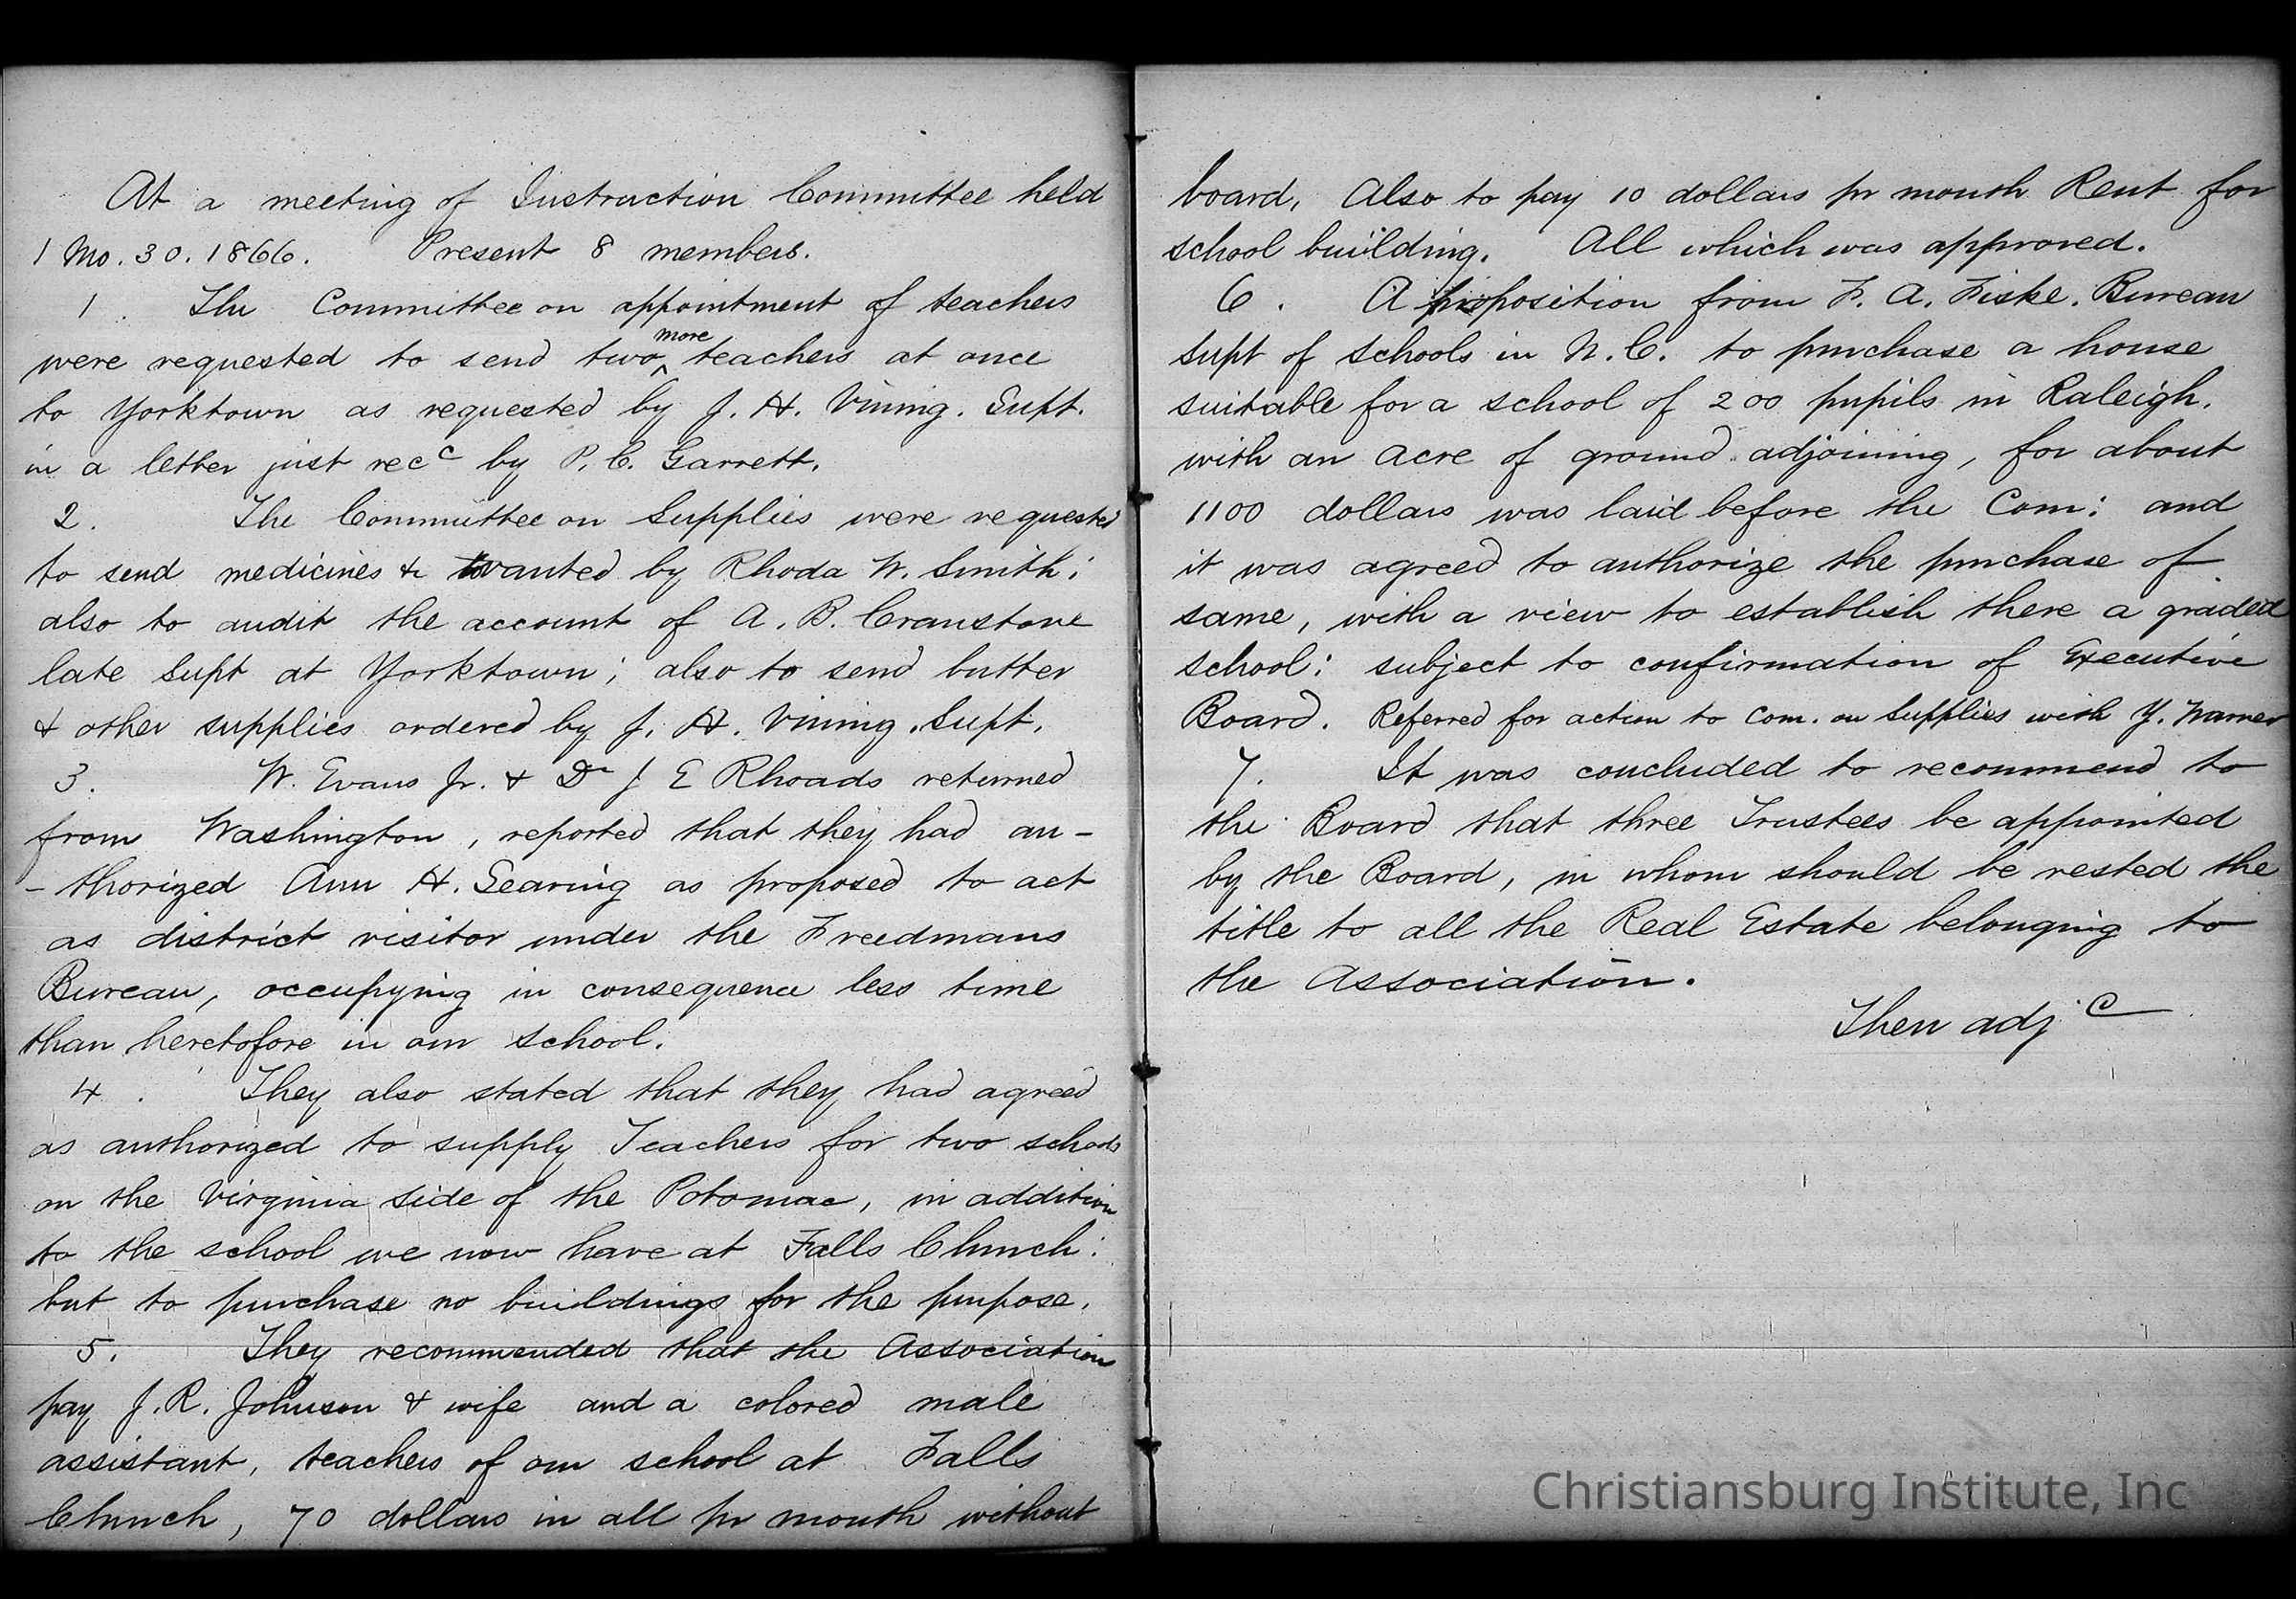 At a meeting of Instruction Committee held
1 Mo. 30. 1866. Present 8 members.
1. The Committee on appointment of teachers
were requested to send two more teachers at once
to Yorktown as requested by J. H. Vining. Supt.
in a letter just recd by P. C. Garrett.
2. The Committee on Supplies were requested
to send medicines &c wanted by Rhoda W. Smith;
also to audit the account of A. B. Cranstone
late Supt at Yorktown; also to send butter
& other supplies ordered by J. H. Vining. Supt.
3. W. Evans Jr. & Dr J E Rhoads returned
from Washington, reported that they had au-
-thorized Ann H. Searing as proposed to act
as district visitor under the Freedmans
Bureau, occupying in consequence less time
than heretofore in our school.
4. They also stated that they had agreed
as authorized to supply Teachers for two schools
on the Virginia side of the Potomac, in addition
to the school we now have at Falls Church:
but to purchase no buildings for the purpose.
5. They recommended that the Association
pay J. R. Johnson & wife and a colored male
assistant, teachers of our school at Falls
Church, 70 dollars in all pr month without
board, Also to pay 10 dollars pr month Rent for
school building. All which was approved.
6. A proposition from F. A. Fiske. Bureau
Supt of Schools in N. C. to purchase a house
suitable for a school of 200 pupils in Raleigh.
with an acre of ground adjoining, for about
1100 dollars was laid before the Com: and
it was agreed to authorize the purchase of
same, with a view to establish there a graded
school: subject to confirmation of Executive
Board. Referred for action to Com. on Supplies with Y. Warner
7. It was concluded to recommend to
the Board that three Trustees be appointed
by the Board, in whom should be vested the
title to all the Real Estate belonging to
the Association.
Then adjd
Christiansburg Institute, Inc